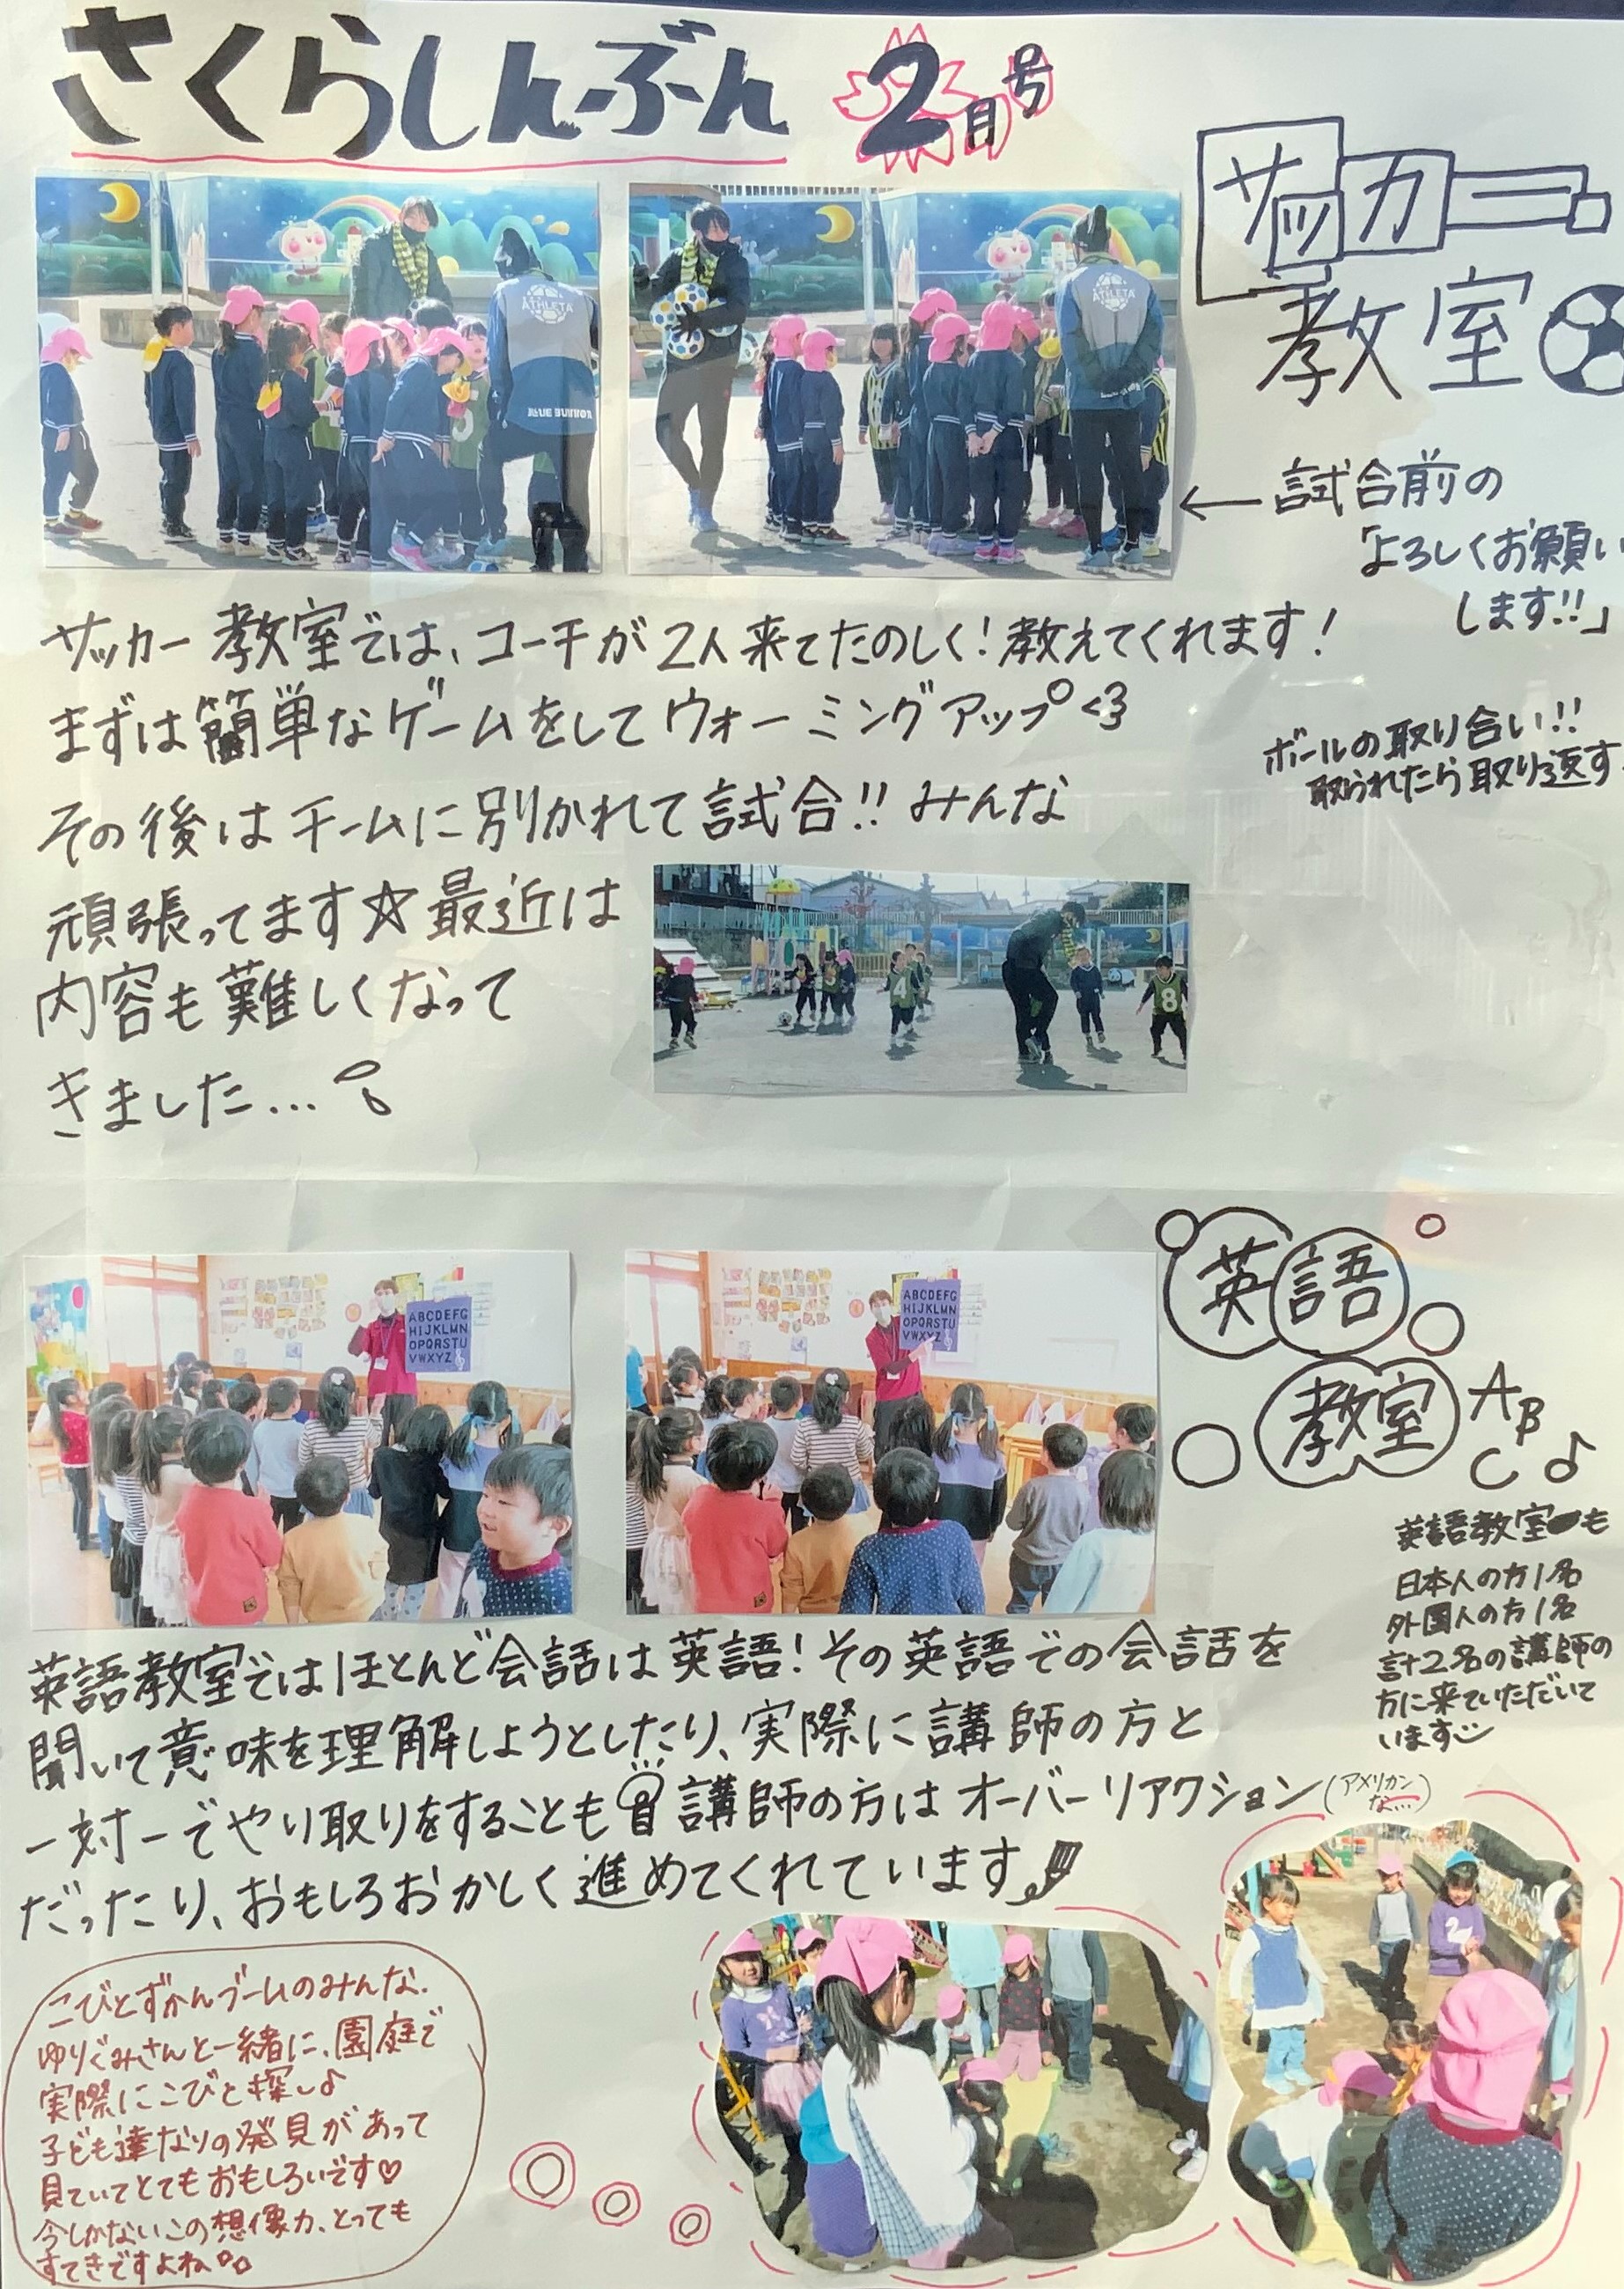 さくらしんぶん 2月号
サッカー
教室
←試合前の
「よろしくお願い
します!!」
サッカー教室では、コーチが2人来てたのしく!教えてくれます!
まずは簡単なゲームをしてウォーミングアップ<3
その後はチームに別かれて試合!!みんな
頑張ってます☆最近は
内容も難しくなって
きました...
ボールの取り合い!!
取られたら取り返す
ATHLETA
ATHLETA
4
8
英語
教室
ABC♪
ABCDEFG
HIJKLMN
OPQRSTU
VWXYZ
ABCDEFG
HIJKLMN
OPQRSTU
VWXYZ
英語教室も
日本人の方1名
外国人の方1名
計2名の講師の
方に来ていただいて
います
英語教室ではほとんど会話は英語!その英語での会話を
聞いて意味を理解しようとしたり、実際に講師の方と
一対一でやり取りをすることも 講師の方はオーバーリアクション(アメリカンな...)
だったり、おもしろおかしく進めてくれています
こびとずかんブームのみんな.
ゆりぐみさんと一緒に、園庭で
実際にこびと探し♪
子ども達なりの発見があって
見ていてとてもおもしろいです♡
今しかないこの想像力、とっても
すてきですよね